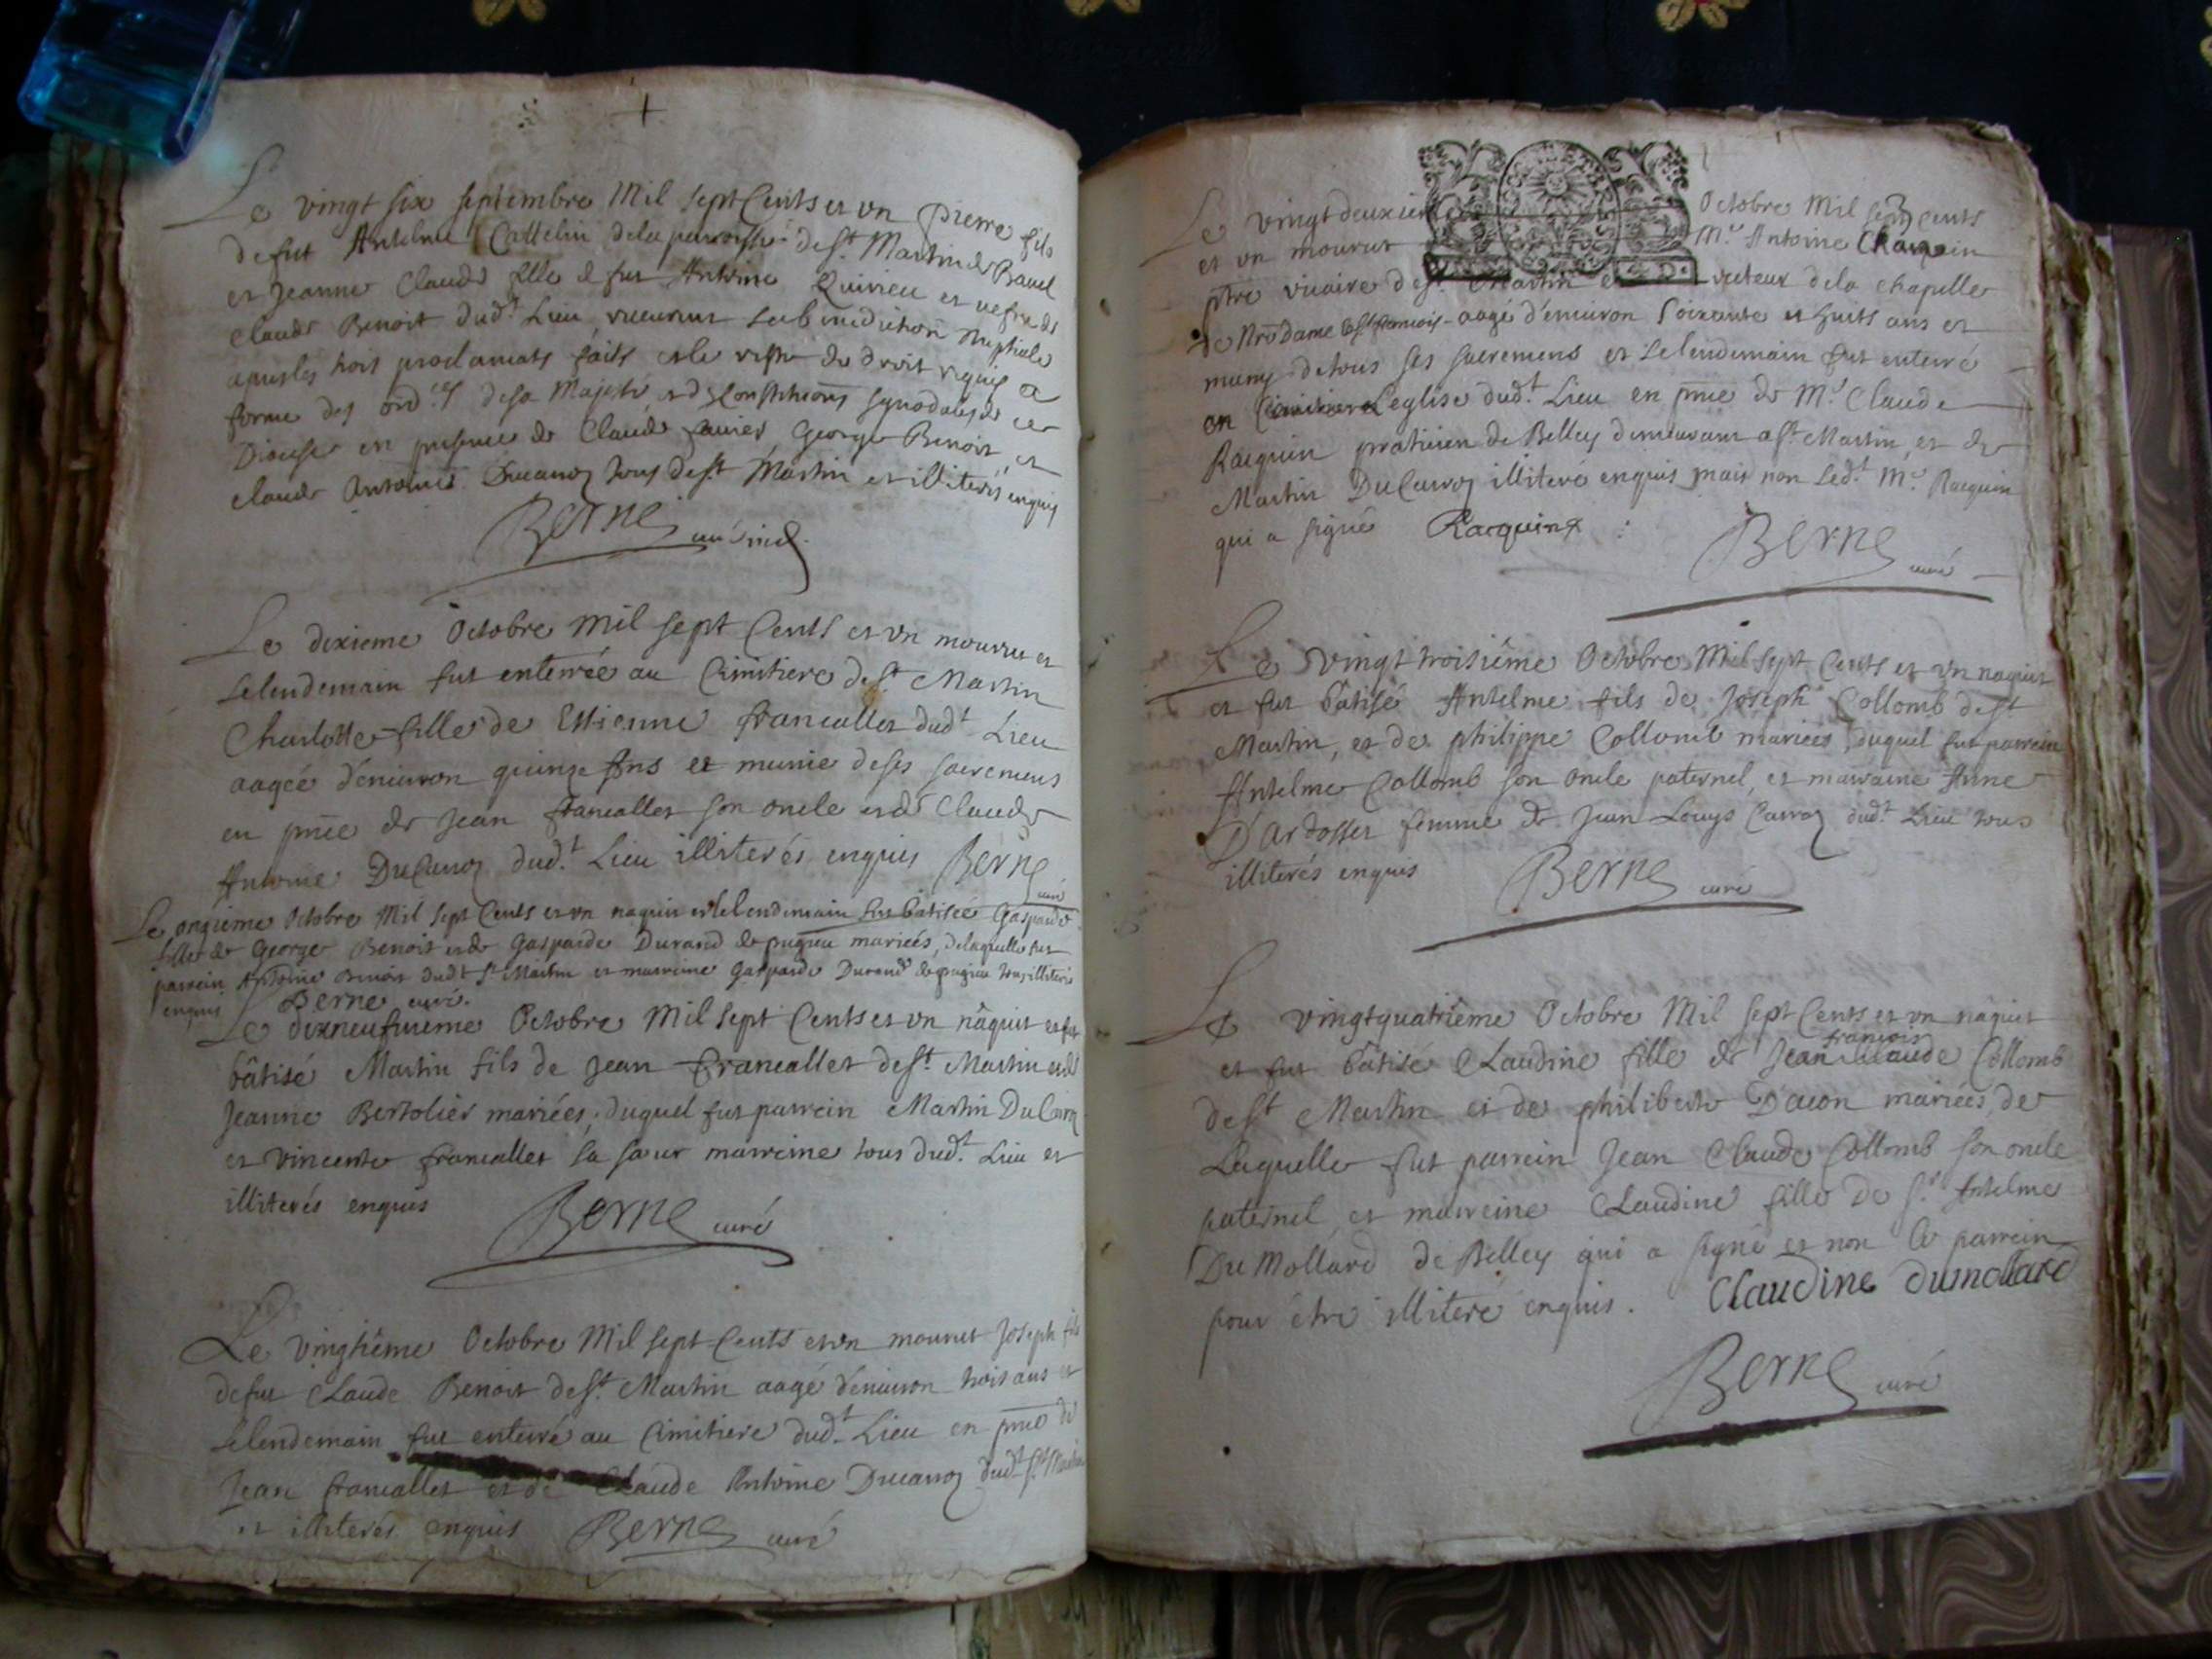 Le vingt six septembre Mil sept Cents et un Pierre fils
de fut Antelme Cattelin dela parroisse de St. Martin de Bavel
et Jeanne Claude fille de fut Antoine Quinieu et vefve de
Claude Benoit dud.t Lieu, receurent la benediction nuptiale
apres les trois proclamats faits et le reste de droit requis a
forme des ord.ces de sa Majesté et des constitutions synodales de ce
Diocese en presence de Claude George Benoit, et
claude Antoine Ducarroz tous de St. Martin et illiterés enquis
Berne curé
Le dixieme Octobre Mil sept Cents et un mourru et
le lendemain fut enterrée au Cimitiere de St. Martin
Charlotte fille de Estienne francallet dud.t Lieu
aagée d'environ quinze Ans et munie de ses sacremens
en pnce de Jean francallet son oncle et de Claude
Antoine DuCarroz dud.t Lieu illiterés enquis Berne curé
Le onzieme Octobre Mil sept Cents et un naquit et le lendemain fut batisée Gasparde
fille de George Benoit et de Gasparde Durand de pugieu mariées, de laquelle fut
parrein Antoine Benoit dudt St Martin et marreine Gasparde Durand de pugieu tous illiterés
enquis Berne curé.
Le dixneufvieme Octobre Mil sept Cents et un nâquit et fut
bâtisé Martin fils de Jean francallet de St. Martin et de
Jeanne Bertolier mariées, duquel fut parrein Martin DuCarroz
et vincente francallet sa sœur marreine tous dud.t Lieu et
illiterés enquis Berne curé
Le vingtiême Octobre Mil sept Cents et un mourut Joseph fils
de fut Claude Benoit de St. Martin aagé d'environ trois ans et
le lendemain fut enterré au Cimitiere dud.t Lieu en pnce de
Jean francallet et de Claude Antoine Ducarroz dud.t St. Martin
et illiterés enquis Berne curé
Le vingt deuxieme Octobre Mil sept cents
et un mourut M.e Antoine
ptre vicaire de St. Martin et recteur dela chapelle
de Nre Dame aagé d'environ soixante et huits ans et
muny de tous ses sacremens et le lendemain fut enterré
en l'eglise dud.t Lieu en pnce de M.e Claude
Racquin praticien de Belley demeurant a St. Martin, et de
Martin DuCarroz illiteré enquis mais non led.t M.e Racquin
qui a signé Racquin
Berne curé
Le vingt troisiême Octobre Mil sept Cents et un naquit
et fut bâtisé Antelme fils de Joseph Collomb de St
Martin, et de philippe Collomb mariées, duquel fut parrein
Antelme Collomb son oncle paternel, et marraine Anne
D'Ardosset femme de Jean Louys Carroz dud.t Lieu tous
illiterés enquis Berne curé
Le vingtquatriême Octobre Mil sept Cents et un naquit
et fut bâtisé Claudine fille de Jean françois Collomb
de St Martin et de philiberte Dacon mariées, de
Laquelle fut parrein Jean Claude Collomb son oncle
paternel et marreine Claudine fille De Sr. Antelme
Du Mollard de Belley qui a signé et non le parrein
pour être illiteré enquis. Claudine dumollard
Berne curé